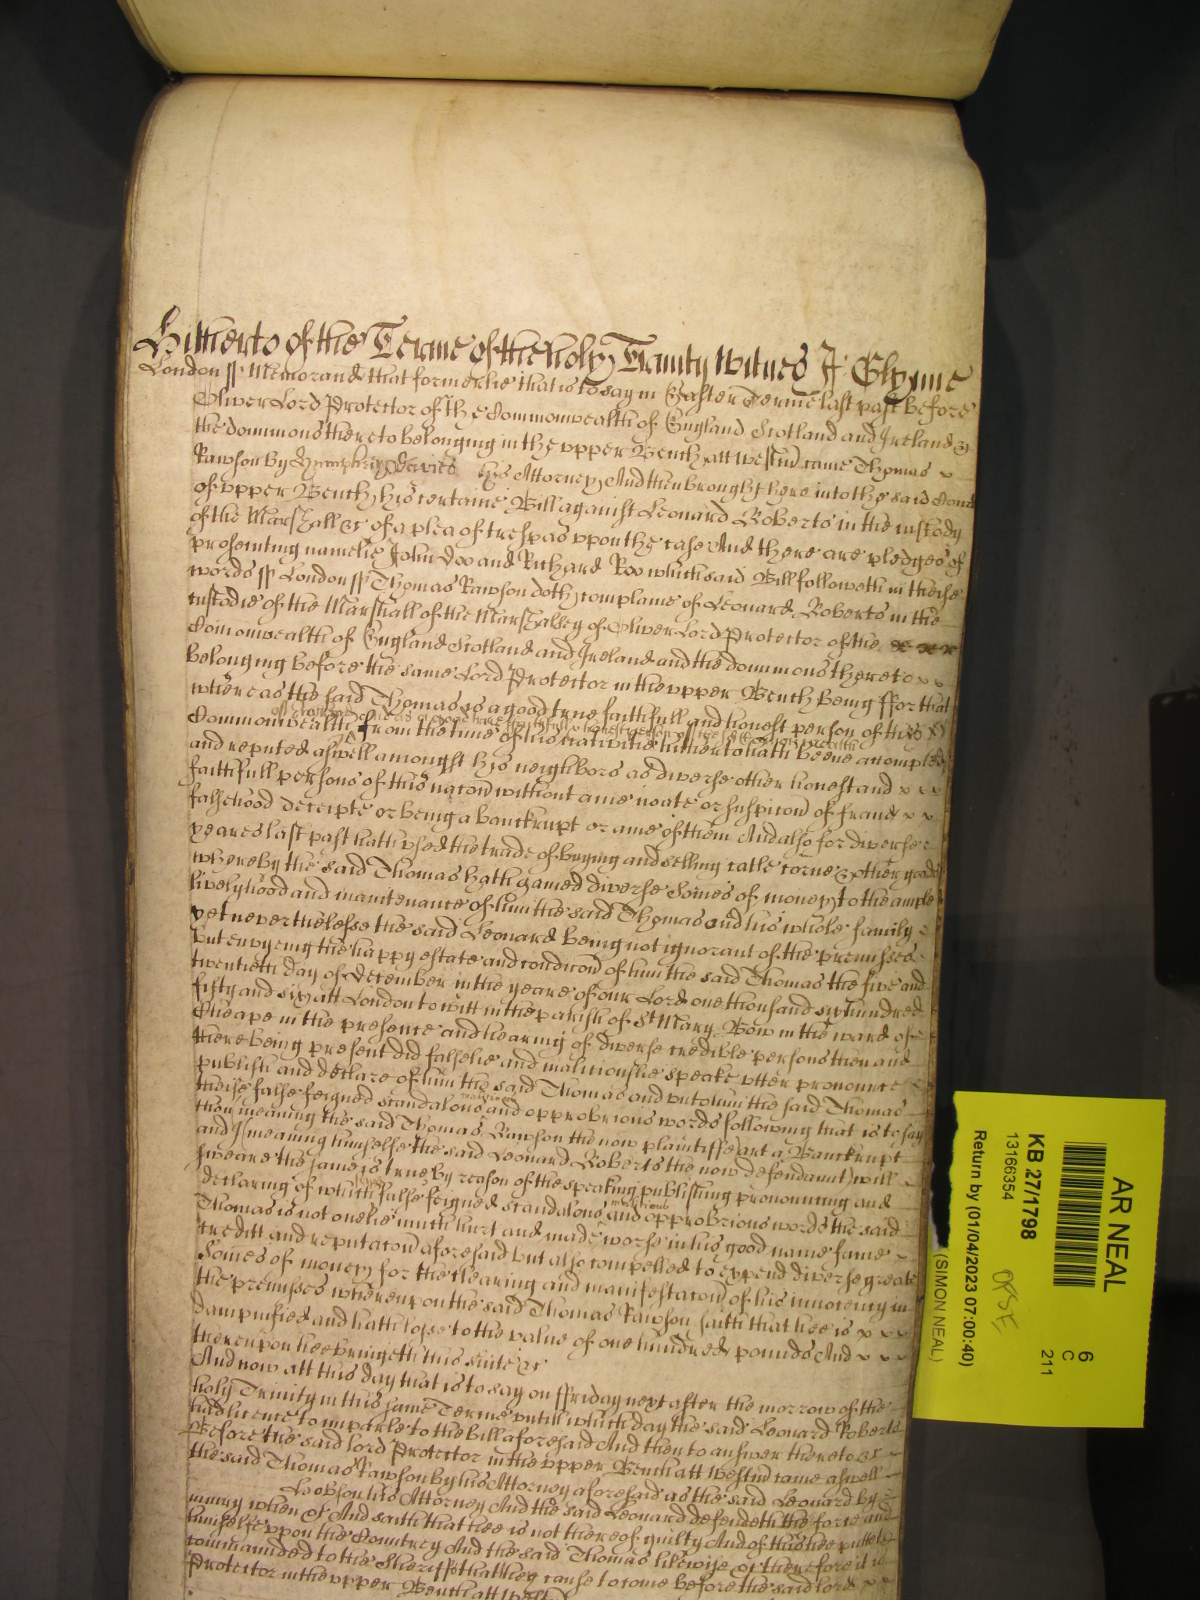 Hitherto of the Terme of the holy Trinity Witnes Jo: Glynne
London ss Memorand that formerlie that is to say in Easter Terme last past before
Oliver Lord Protector of the Commonwealth of England Scotland and Ireland &
the dominions thereto belonging in the upper Bench att Westm came Thomas x
Rawson by Humphrey his Attorney And then brought here into the said Court
of upper Bench his certaine Bill against Leonard Roberts in the custody
of the Marshall &c of a plea of trespas upon the case And there are pledges of
prosecuting namelie John Doo and Richard Roo which said Bill followeth in theise
words ss London ss Thomas Rawson doth complaine of Leonard Roberts in the
custodie of the Marshall of the Marshalsey of Oliver Lord Protector of the x x x
Comonwealth of England Scotland and Ireland and the dominions thereto x x
belonging before the same Lord Protector in the upper Bench being ffor that
whereas the said Thomas is a good true faithfull and honest person of this x x
Commonwealth from the time of his nativitie hitherto hath beene accompted
and reputed aswell amongst his neighbors as diverse other honest and x x x
faithfull persons of this nacon without anie noate or suspicon of fraud x x
falsehood deceipte or being a banckrupt or anie of them And also for diverse
yeares last past hath used the trade of buying and selling catle corne & other goods
whereby the said Thomas hath gained diverse Somes of money to the ample
livelyhood and maintenance of him the said Thomas and his whole family
yet nevertheless the said Leonard being not ignorant of the premisses
but envyeing the happy estate and condicon of him the said Thomas the five and
twentieth day of December in the yeare of our Lord one thousand six hundred
fifty and six att London to witt in the parish of St Mary Bow in the ward of
Cheape in the presence and hearing of diverse credible persons then and
there being present did falselie and maliciouslie speake utter pronounce
publish and declare of him the said Thomas and unto him the said Thomas
theise false feigned scandalous malicious and opprobrious words following that is to say
thou meaning the said Thomas Rawson the now plaintiffe art a Banckrupt
and I (meaning himselfe the said Leonard Roberts the now defendannt) will
sweare the same is true by reason of the speaking publishing pronouncing and
declaring of which false feigned scandalous malicious and opprobrious words the said
Thomas is not onelie much hurt and made worse in his good name fame
creditt and reputacon aforesaid but also compelled to expend diverse greate
Somes of money for the clearing and manifestacon of his innocency in
the premisses whereupon the said Thomas Rawson saith that hee is x x x
dampnified and hath losse to the value of one hundred pounds And x x x
thereupon hee bringeth this suite &c
And now att this day that is to say on ffriday next after the morrow of the
holy Trinity in this same Terme untill which day the said Leonard Roberts
had licence to imparle to the bill aforesaid And then to answer thereto &c
Before the said lord Protector in the upper Bench att Westm came aswell
the said Thomas Rawson by his Attorney aforesaid as the said Leonard by
his Attorney And the said Leonard defendeth the force and
iniury when &c And saith that hee is not thereof guilty And of this hee putteth
himselfe upon the Countrey And the said Thomas likewise &c therefore it is
commannded to the Sheriffe that they cause to come before the said lord x x
Protector in the upper Bench att Westm
AR NEAL
KB 27/1798
13166354
Return by (01/04/2023 07:00:40)
(SIMON NEAL)
6
C
211